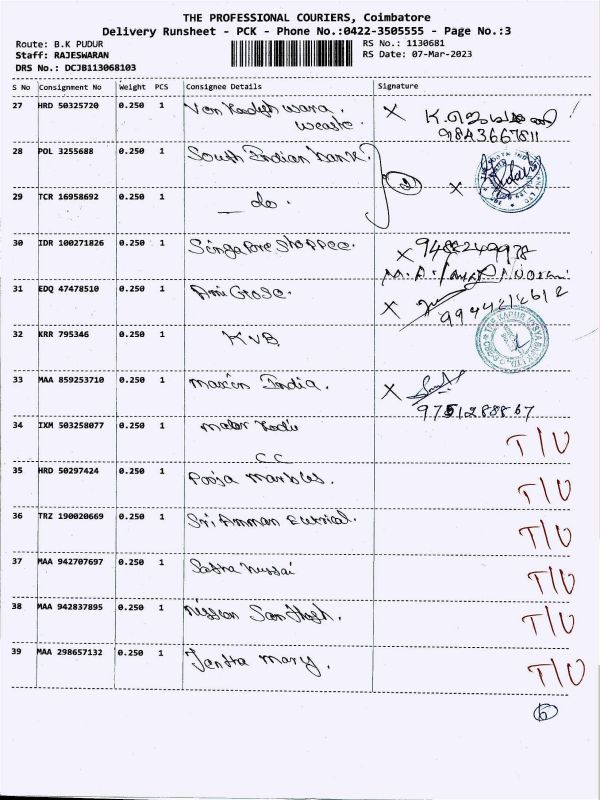 THE PROFESSIONAL COURIERS, Coimbatore
Delivery Runsheet - PCK - Phone No.:0422-3505555 - Page No.:3
Route: B.K PUDUR RS No.: 1130681
Staff: RAJESWARAN RS Date: 07-Mar-2023
DRS No.: DCJB113068103
S No Consignment No Weight PCS Consignee Details Signature
27 HRD 50325720 0.250 1 Venkadeshwara X
waste 9843667811
28 POL 3255688 0.250 1 South Indian bank. 2
29 TCR 16958692 0.250 1 — do. X
30 IDR 100271826 0.250 1 Singapore shoppee. X 9488249978
31 EDQ 47478510 0.250 1 X 9944212612
32 KRR 795346 0.250 1 KVB
33 MAA 859253710 0.250 1 India. X
9751288867
34 IXM 503258077 0.250 1 T/U
CC
35 HRD 50297424 0.250 1 Pooja Marbles. T/U
36 TRZ 190020669 0.250 1 Sri Amman T/U
37 MAA 942707697 0.250 1 T/U
38 MAA 942837895 0.250 1 Santhosh. T/U
39 MAA 298657132 0.250 1 Mary. T/U
6